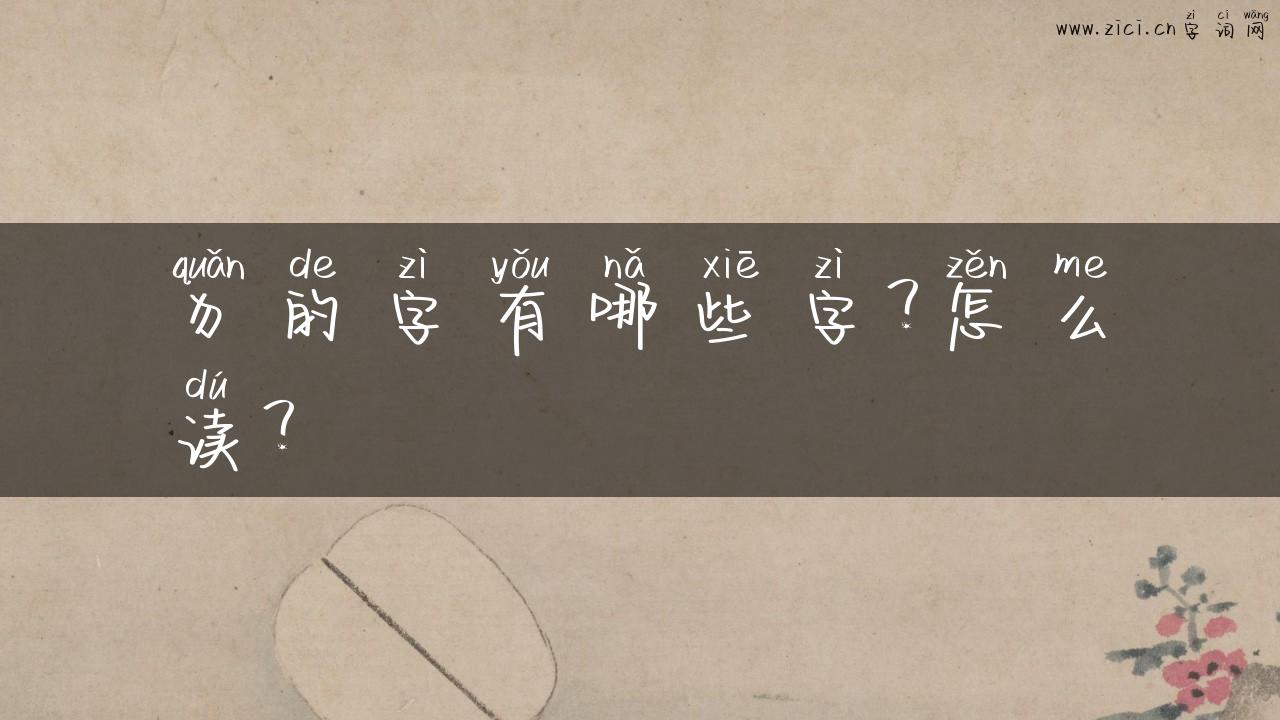 zì cí wǎng
www.zici.cn 字 词 网
quǎn de zì yǒu nǎ xiē zì zěn me
犭 的 字 有 哪 些 字 ? 怎 么
dú
读 ?